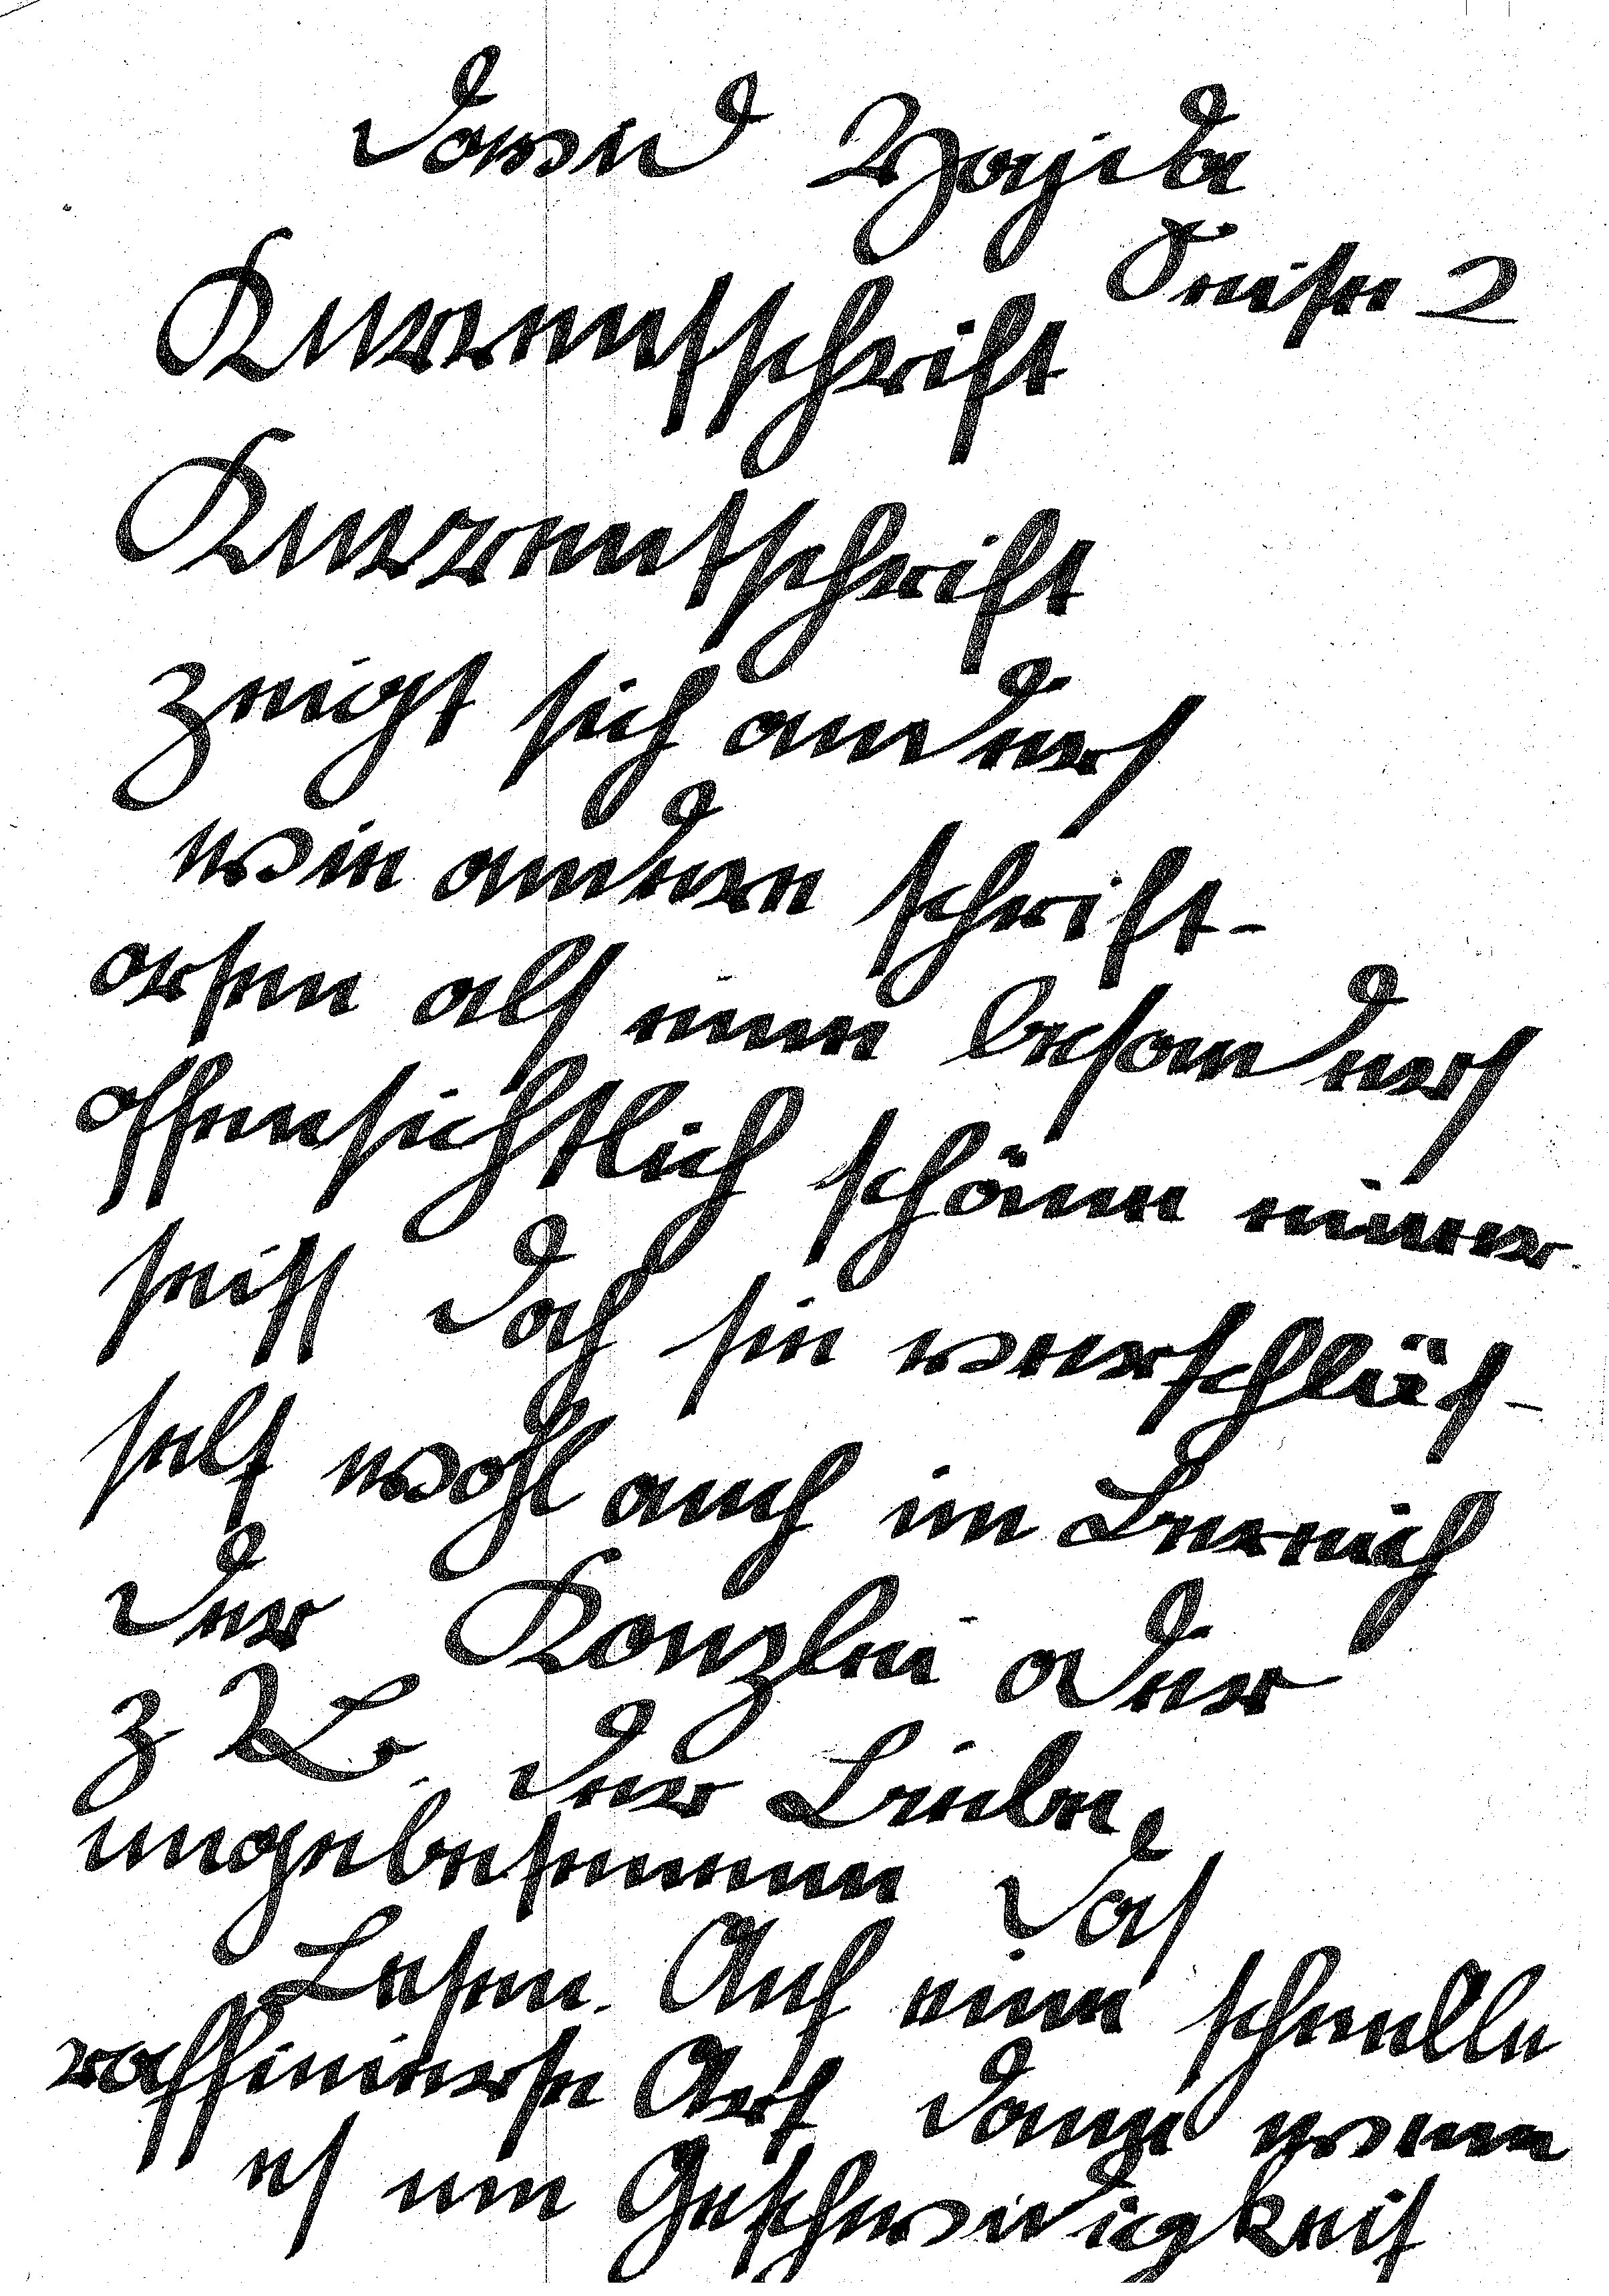 David Vajda
Seite 2
Kurrentschrift
Kurrentschrift
zeigt sich anders
wie andere schrift-
arten als eine besonders
offensichtlich schöne einer
seits doch sie verschlüs-
selt wohl auch im Bereich
der Kanzlei oder
z B. der Liebe,
ungebesemmen das
Lesen. Auch eine schnelle
raffinierte Art dann wenn
es um Geschwindigkeit